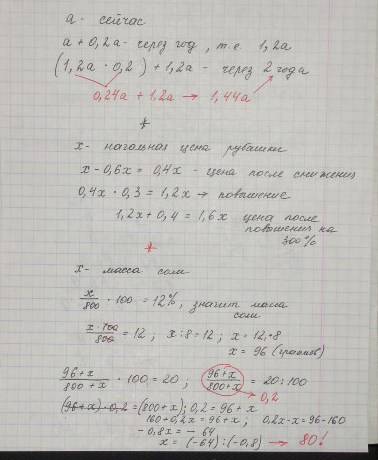 а - сейчас
а + 0,2а - через год, т.е. 1,2а
(1,2а · 0,2) + 1,2а - через 2 года
0,24а + 1,2а → 1,44а
*
х - начальная цена рубашки
х - 0,6х = 0,4х - цена после снижения
0,4х · 0,3 = 1,2х → повышение
1,2х + 0,4 = 1,6х цена после
повышения на
300%
*
х - масса соли
х/800 · 100 = 12%, значит масса
соли
х·100/800 = 12; х : 8 = 12; х = 12·8
х = 96 (граммов)
96+х/800+х · 100 = 20; 96+х/800+х = 20:100
0,2
(96+х) · 0,2 = (800+х); 0,2 = 96+х
160+0,2х = 96+х; 0,2х-х = 96-160
-0,8х = -64
х = (-64) : (-0,8) → 80!